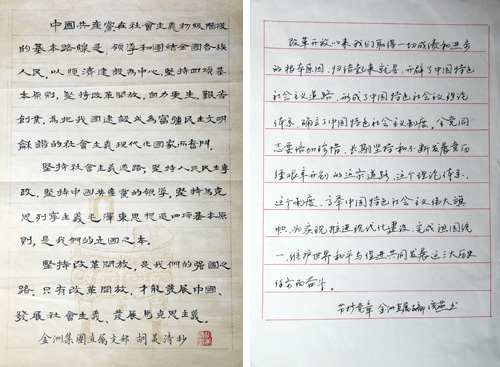 中國共產黨在社會主義初级階段
的基本路線是，領導和團結全國各族
人民，以經濟建設為中心，堅持四項基
本原則，堅持改革開放，自力更生，艱苦
創業，為把我國建設成為富强民主文明
龢諧的社會主義現代化國家而奮鬥。
堅持社會主義道路，堅持人民民主專
政、堅持中國共產黨的領導，堅持馬克
思列寧主義毛澤東思想這四項基本原
則，是我們的立國之本。
堅持改革開放，是我們的强國之
路。只有改革開放，才能發展中國、
發展社會主義、發展馬克思主義。
金洲集團直属支部 胡美清抄
改革开放以来我们取得一切成绩和进步
的根本原因，归结起来就是：开辟了中国特色
社会主义道路，形成了中国特色社会主义理论
体系，确立了中国特色社会主义制度。全党同
志要倍加珍惜、长期坚持和不断发展党历
经艰辛开创的这条道路、这个理论体系、
这个制度，高举中国特色社会主义伟大旗
帜，为实现推进现代化建设、完成祖国统
一、维护世界和平与促进共同发展这三大历史
任务而奋斗。
节抄党章 金洲直属